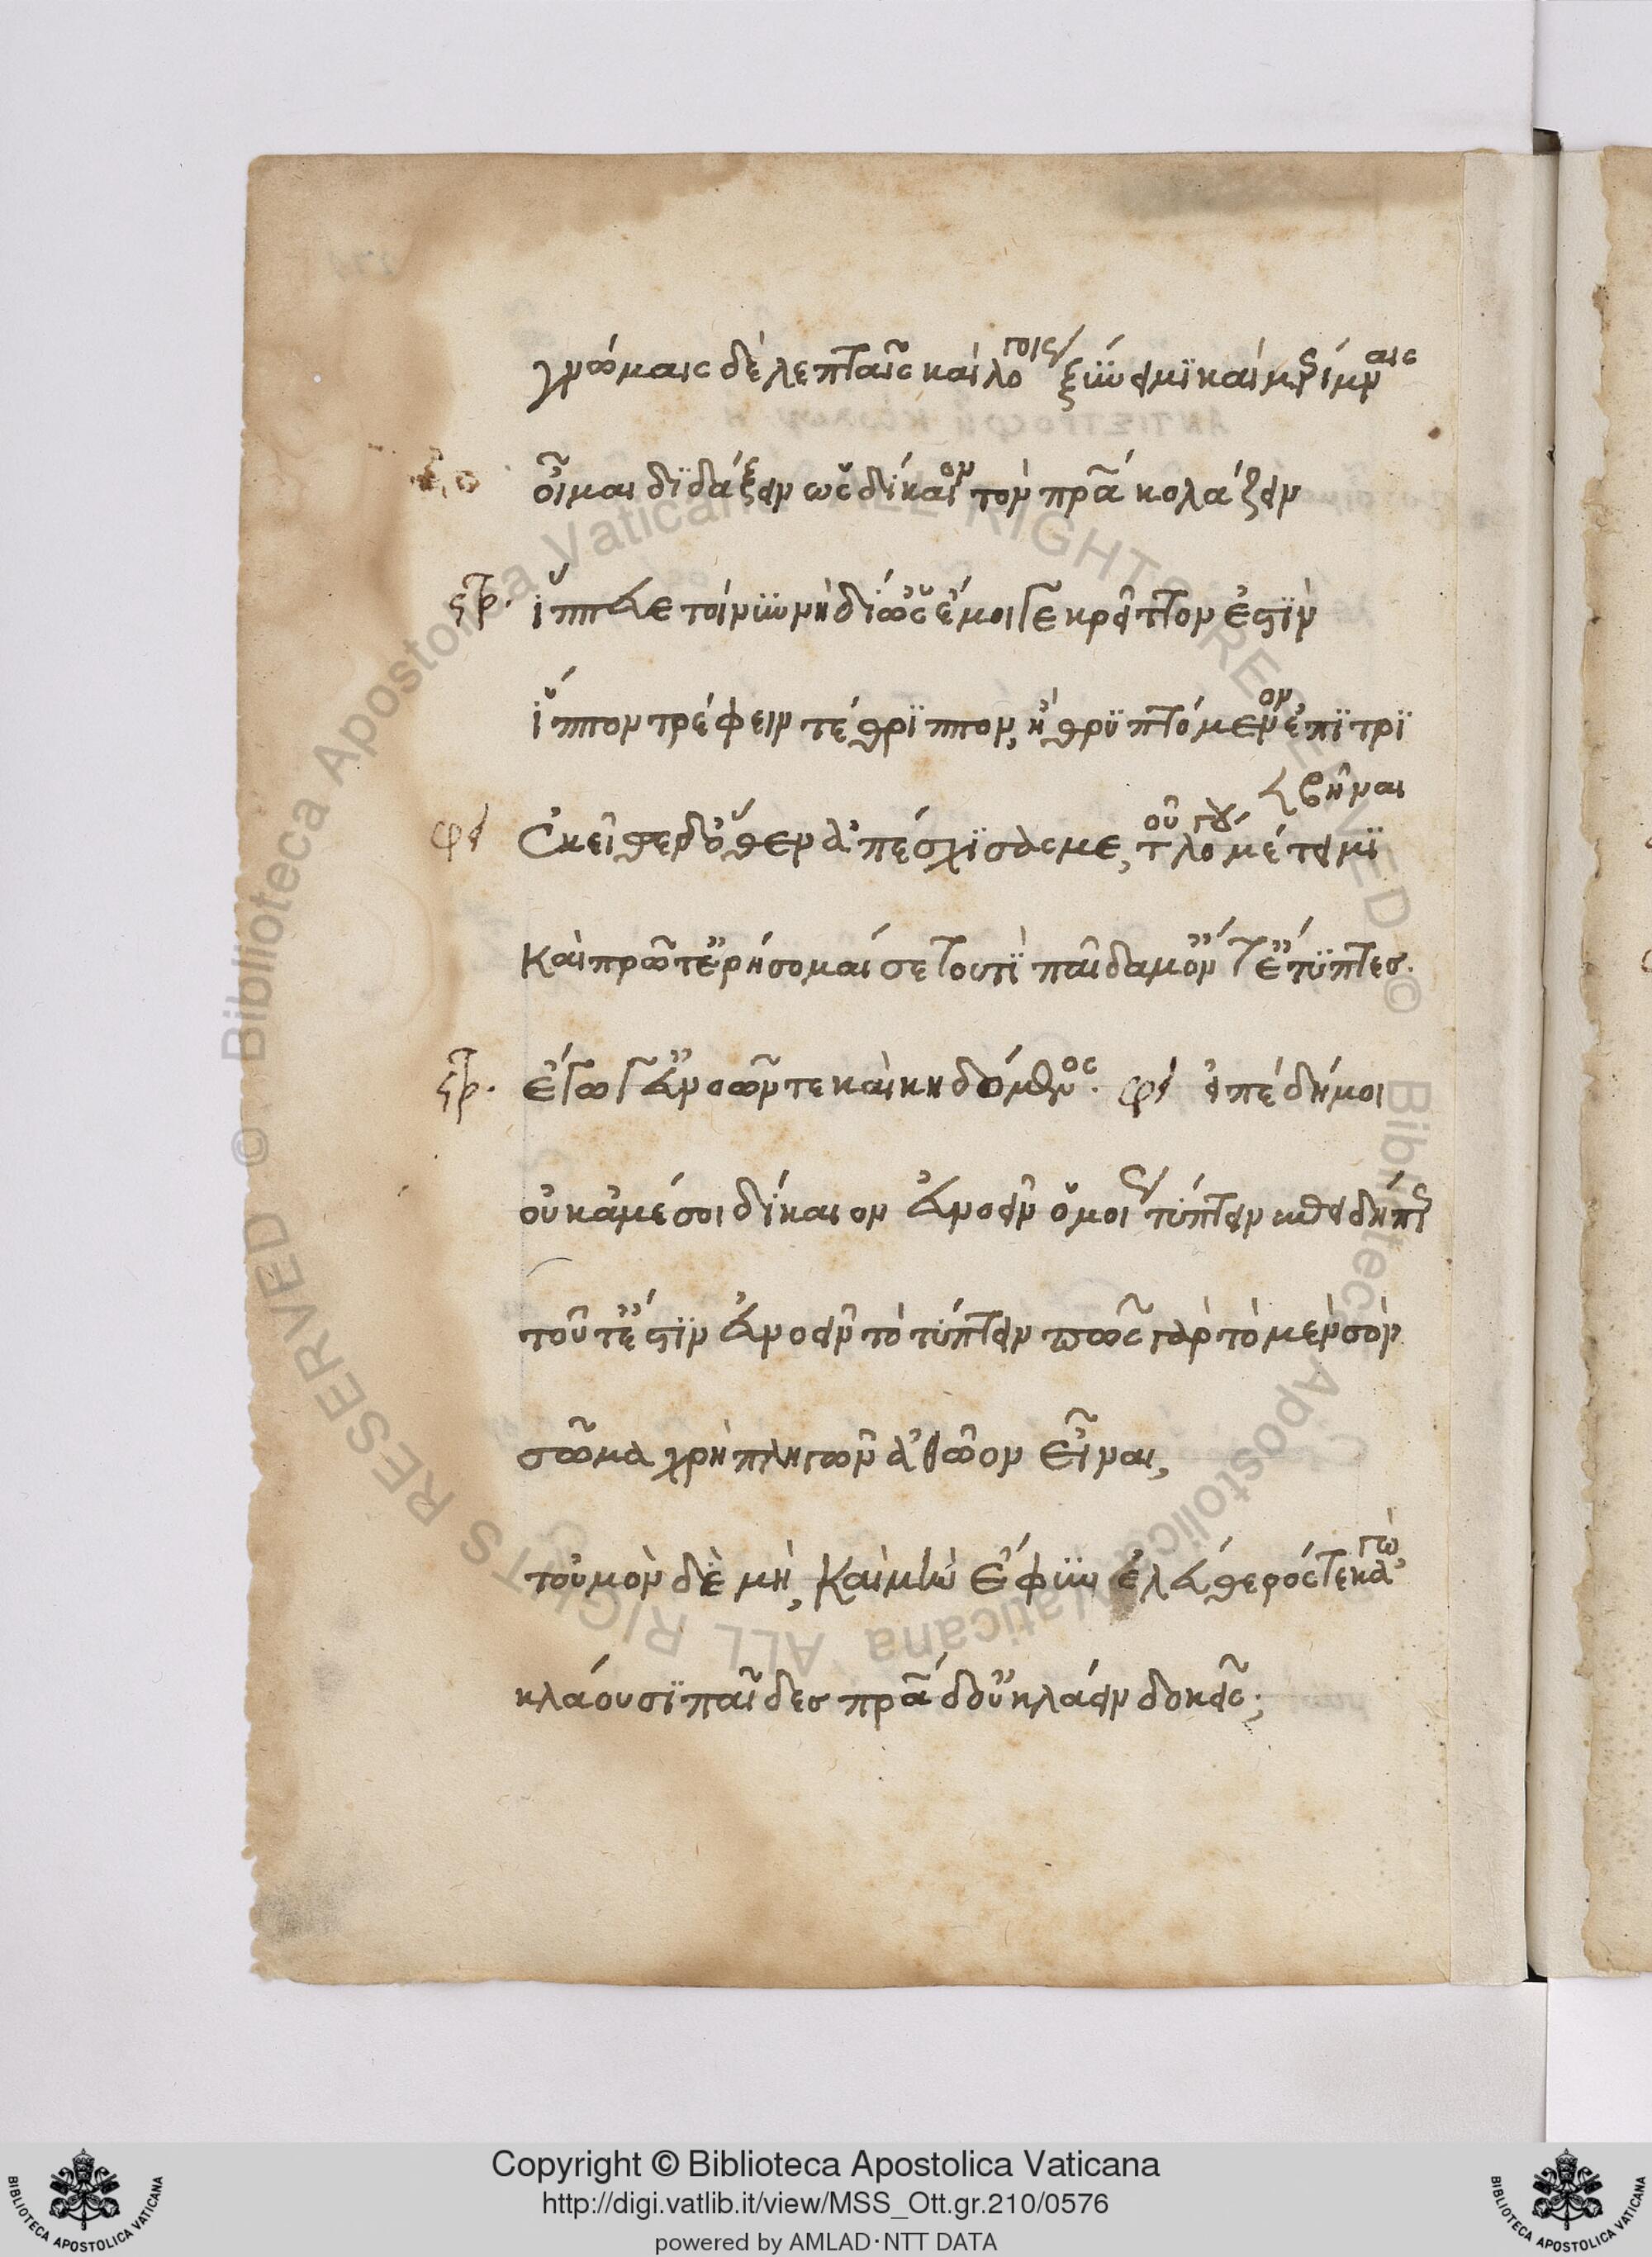 γνώμαις δὲ λεπταῖς καὶ λόγοις ξύνειμι καὶ μερίμναις
οἶμαι διδάξειν ὡς δίκαιον τὸν πρα κολάζειν
στρ. ἵππευε τοίνυν νὴ δί' ὡς ἔμοιγε κρεῖττον ἐστὶν
ἵππον τρέφειν τέθριππον, ἢ θρυπτόμενον ἐπιτρι
βῆναι
φει Ἐκεῖθεν δ' ὅθεν ἀπέσχισάς με, τοῦ λόγου μέτειμι
καὶ πρῶτ' ἐρήσομαί σε τουτὶ παῖδα μ' ὄντ' ἔτυπτες.
στρ. ἔγωγ' εὐνοῶν τε καὶ κηδόμενος. φει εἰπὲ δή μοι
οὐ κἀμέ σοι δίκαιον εὐνοεῖν ὁμοίως τύπτειν
τοῦτ' ἔστιν εὐνοεῖν τὸ τύπτειν πῶς γὰρ τὸ μὲν σὸν
σῶμα χρὴ πληγῶν ἀθῶον εἶναι,
τοὐμὸν δὲ μή, καὶ μὴν ἔφυν ἐλεύθερός γε κἀγώ
κλάουσι παῖδες πρα δ' οὐ κλάειν δοκεῖς;
Copyright © Biblioteca Apostolica Vaticana
http://digi.vatlib.it/view/MSS_Ott.gr.210/0576
powered by AMLAD·NTT DATA
© Biblioteca Apostolica Vaticana ALL RIGHTS RESERVED
© Biblioteca Apostolica Vaticana ALL RIGHTS RESERVED
BIBLIOTECA APOSTOLICA VATICANA
BIBLIOTECA APOSTOLICA VATICANA